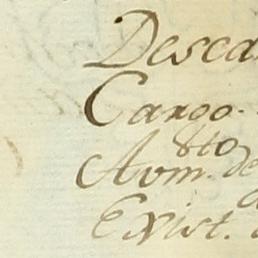 Desca
Cargo.
8to
Aum. de
Exist.